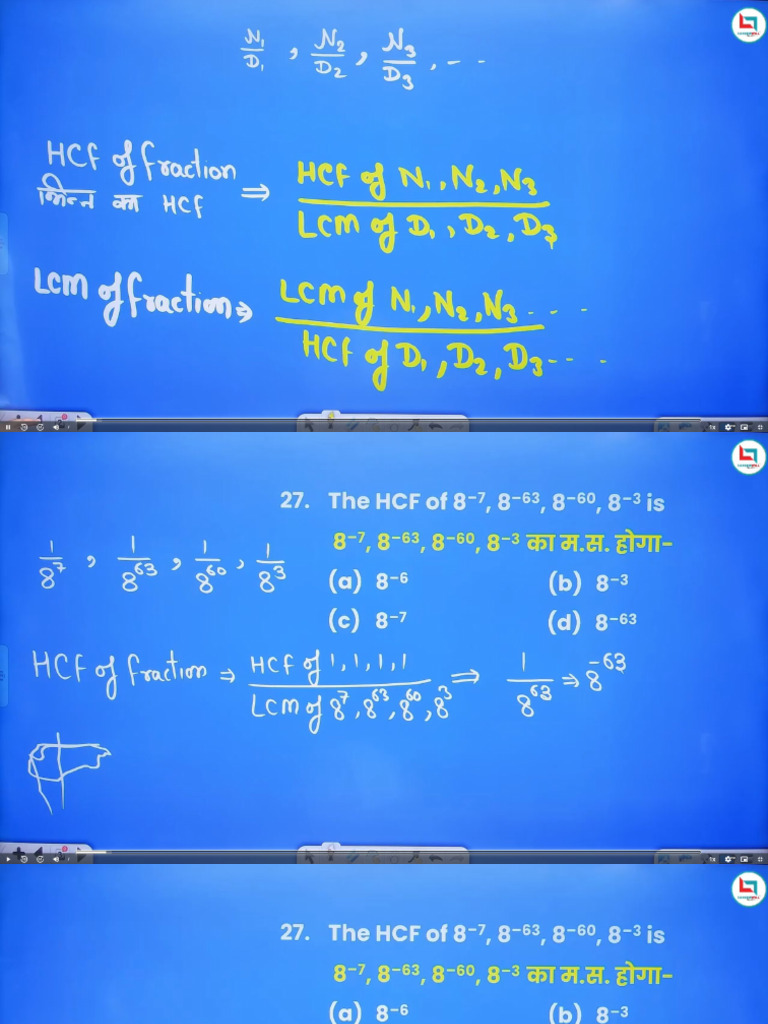 N₁/D₁ , N₂/D₂ , N₃/D₃ , ...
HCF of fraction ⇒ HCF of N₁, N₂, N₃ / LCM of D₁, D₂, D₃
भिन्न का HCF
LCM of fraction ⇒ LCM of N₁, N₂, N₃ .... / HCF of D₁, D₂, D₃ ....
27. The HCF of 8⁻⁷, 8⁻⁶³, 8⁻⁶⁰, 8⁻³ is
8⁻⁷, 8⁻⁶³, 8⁻⁶⁰, 8⁻³ का म.स. होगा-
1/8⁷ , 1/8⁶³ , 1/8⁶⁰ , 1/8³
(a) 8⁻⁶ (b) 8⁻³
(c) 8⁻⁷ (d) 8⁻⁶³
HCF of fraction ⇒ HCF of 1, 1, 1, 1 / LCM of 8⁷, 8⁶³, 8⁶⁰, 8³ ⇒ 1/8⁶³ ⇒ 8⁻⁶³
27. The HCF of 8⁻⁷, 8⁻⁶³, 8⁻⁶⁰, 8⁻³ is
8⁻⁷, 8⁻⁶³, 8⁻⁶⁰, 8⁻³ का म.स. होगा-
(a) 8⁻⁶ (b) 8⁻³